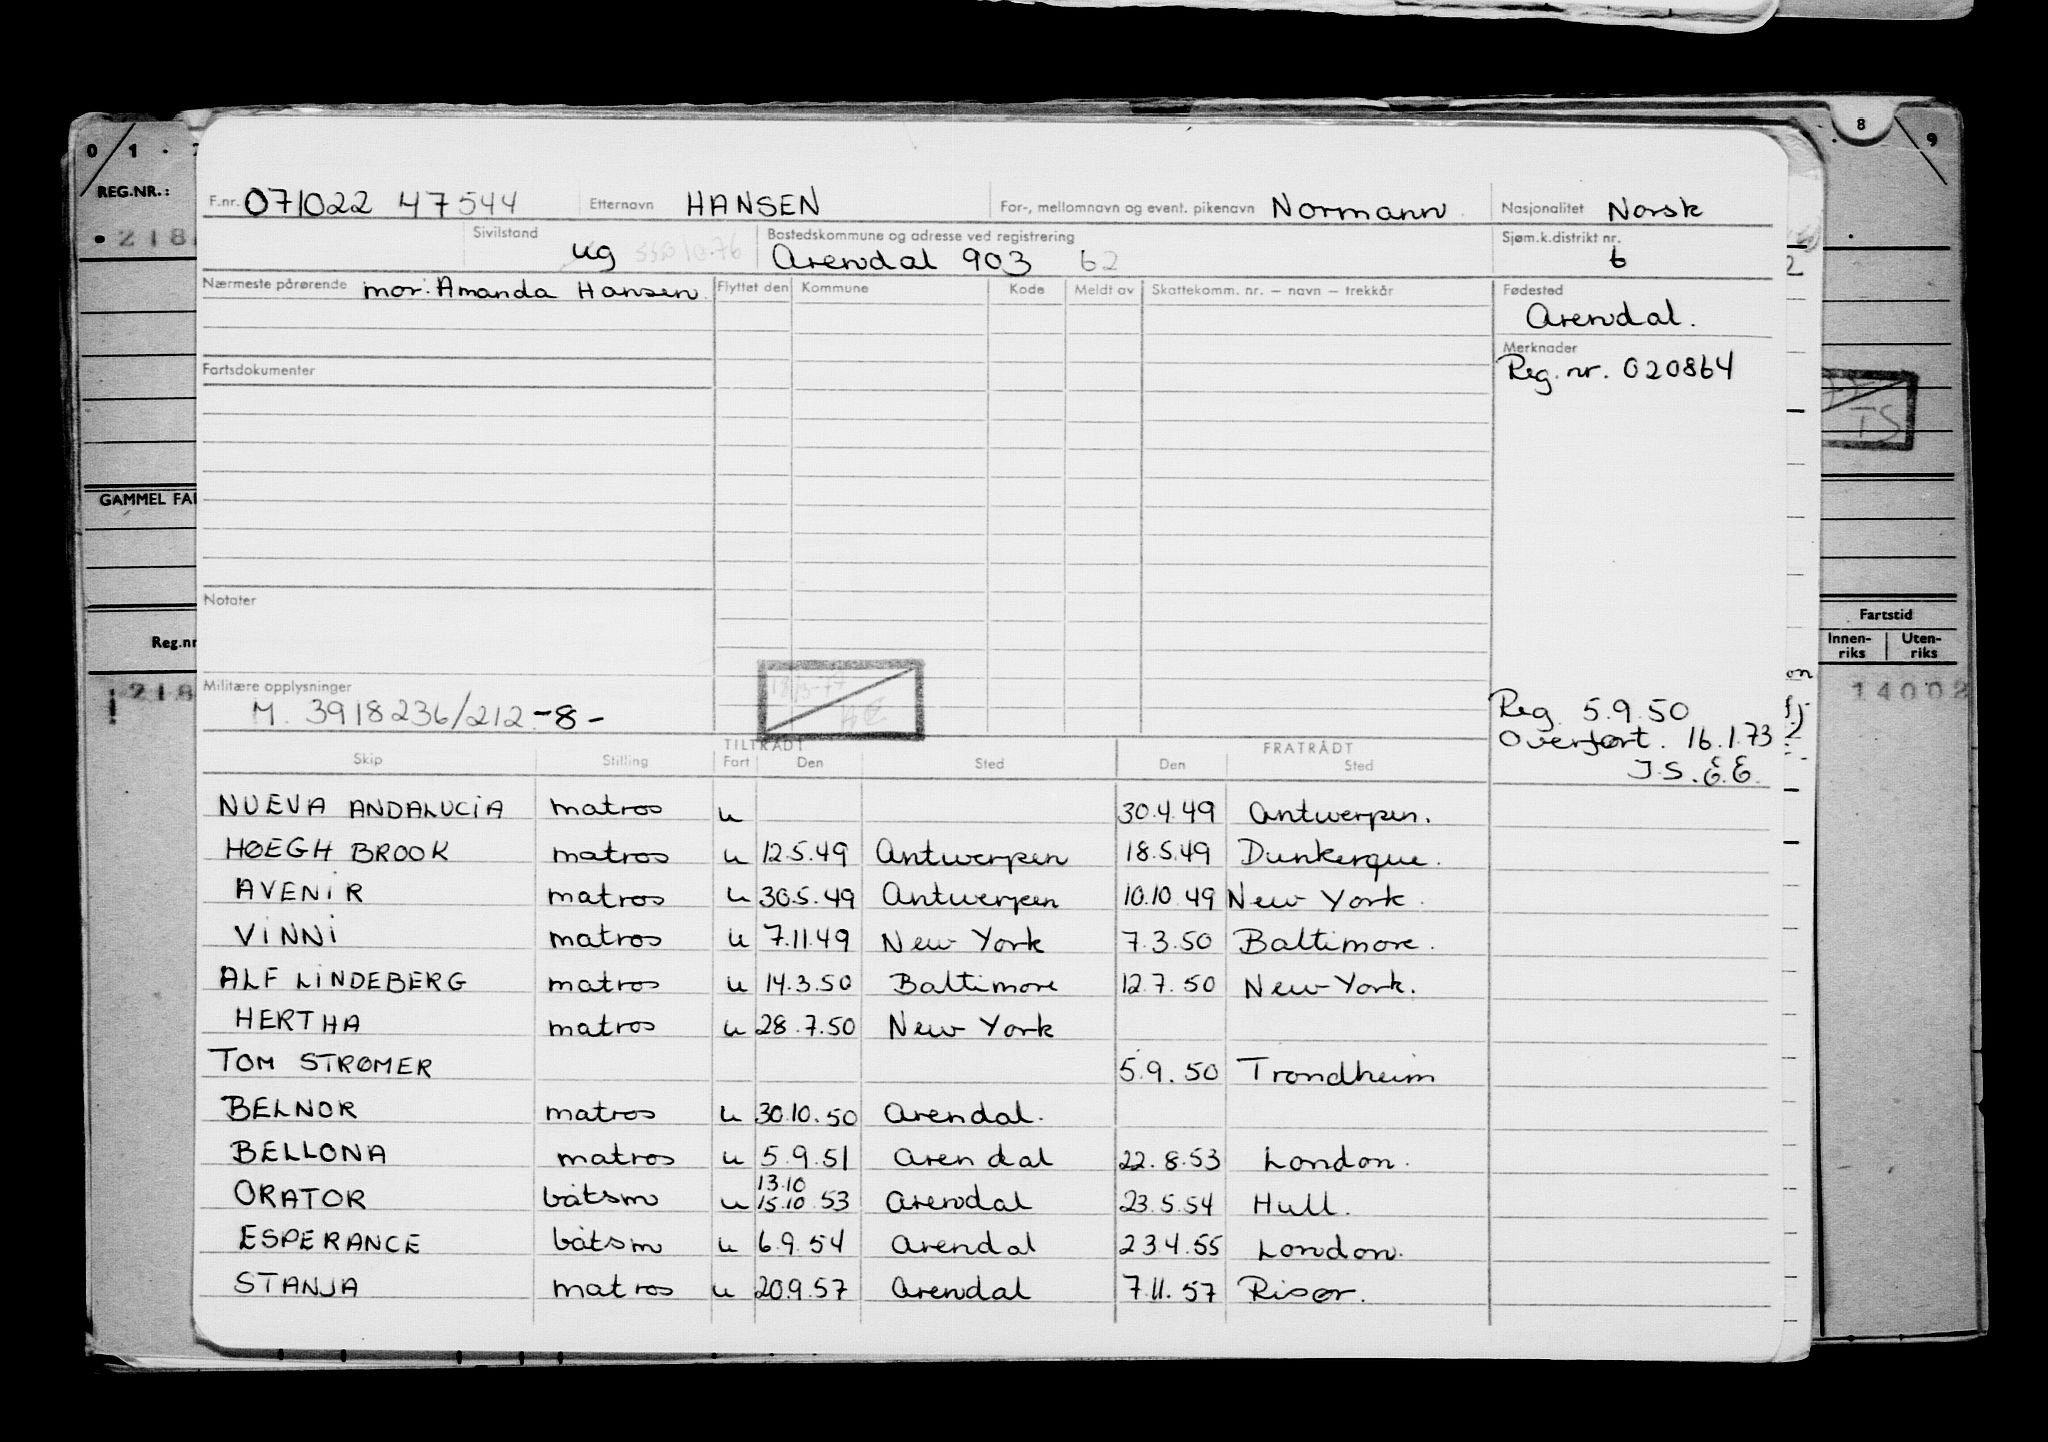 0 1
8 9
REG.NR.:
F.nr. 071022 47544 Etternavn HANSEN For-, mellomnavn og event. pikenavn Normann Nasjonalitet Norsk
218
Sivilstand ug Bostedskommune og adresse ved registrering Arendal 903 62 Sjøm.k.distrikt nr. 6
Nærmeste pårørende mor: Amanda Hansen. Flyttet den Kommune Kode Meldt av Skattekomm. nr. – navn – trekkår Fødested
Arendal.
Merknader
Reg. nr. 020864
Fartsdokumenter
TS
GAMMEL FA
Notater
Fartstid
Reg.nr
Innen-riks Uten-riks
Militære opplysninger
M. 3918236/212-8-
218
14002
Reg. 5.9.50
Overført. 16.1.73
J.S. E.E.
TILTRÅDT FRATRÅDT
Skip Stilling Fart Den Sted Den Sted
NUEVA ANDALUCIA matros u 30.4.49 Antwerpen.
HØEGH BROOK matros u 12.5.49 Antwerpen 18.5.49 Dunkerque.
AVENIR matros u 30.5.49 Antwerpen 10.10.49 New York.
VINNI matros u 7.11.49 New York 7.3.50 Baltimore.
ALF LINDEBERG matros u 14.3.50 Baltimore 12.7.50 New York.
HERTHA matros u 28.7.50 New York
TOM STRØMER 5.9.50 Trondheim
BELNOR matros u 30.10.50 Arendal.
BELLONA matros u 5.9.51 Arendal 22.8.53 London.
13.10
ORATOR båtsm u 15.10.53 Arendal 23.5.54 Hull.
ESPERANCE båtsm u 6.9.54 Arendal 23.4.55 London.
STANJA matros u 20.9.57 Arendal 7.11.57 Risør.